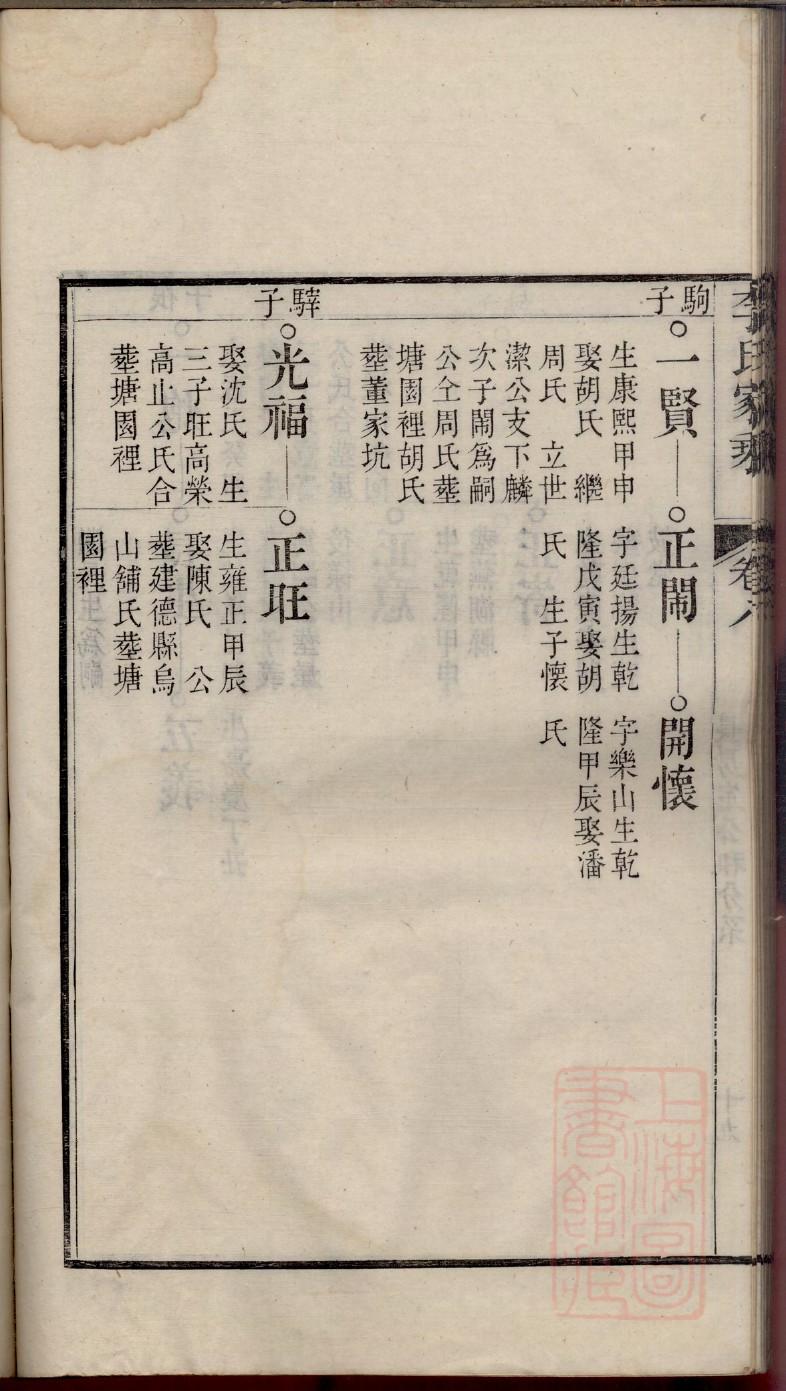 李氏家乘
卷八
駒子
一賢
生康熙甲申
娶胡氏 繼
周氏 立世
潔公支下麟
次子鬧爲嗣
公仝周氏塟
塘園裡胡氏
塟董家坑
正鬧
字廷揚生乾
隆戊寅娶胡
氏 生子懷
開懷
字樂山生乾
隆甲辰娶潘
氏
驛子
光福
娶沈氏 生
三子旺高榮
高止公氏合
塟塘園裡
正旺
生雍正甲辰
娶陳氏 公
塟建德縣烏
山舖氏塟塘
園裡
上海圖
書館藏